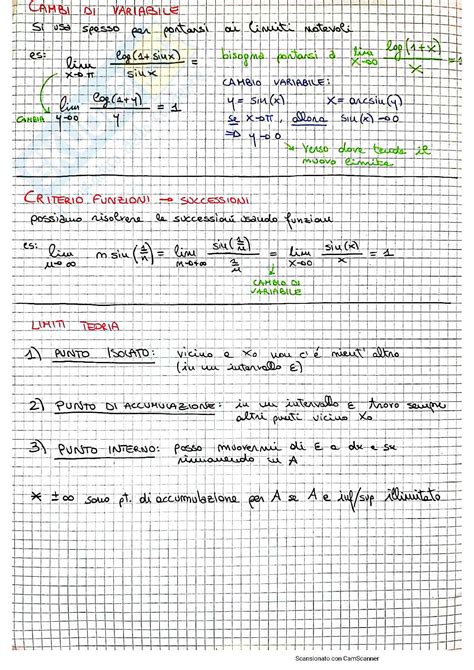 CAMBI DI VARIABILE
Si usa spesso per portarsi ai limiti notevoli
es: lim x→π log(1+sinx)/sinx = bisogna portarsi a lim x→0 log(1+x)/x = 1
CAMBIO VARIABILE:
CAMBIA lim y→0 log(1+y)/y = 1
y = sin(x) x = arcsin(y)
se x→π, allora sin(x)→0
⇒ y→0
verso dove tende il nuovo limite
CRITERIO FUNZIONI → SUCCESSIONI
possiamo risolvere le successioni usando funzioni
es: lim n→∞ n sin(1/n) = lim n→+∞ sin(1/n)/(1/n) = lim x→0 sin(x)/x = 1
CAMBIO DI VARIABILE
LIMITI TEORIA
1) PUNTO ISOLATO: vicino a x₀ non c'è nient'altro
(in un intervallo ε)
2) PUNTO DI ACCUMULAZIONE: in un intervallo ε trovo sempre
altri punti vicino x₀
3) PUNTO INTERNO: posso muovermi di ε a dx e sx
rimanendo in A
* ±∞ sono pt. di accumulazione per A se A è inf/sup illimitato
Scansionato con CamScanner